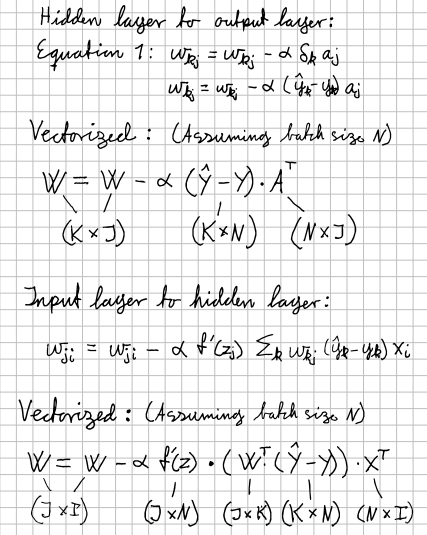 Hidden layer to output layer:
Equation 1: w_kj = w_kj - α δ_k a_j
w_kj = w_kj - α (ŷ_k - y_k) a_j
Vectorized: (Assuming batch size N)
W = W - α (Ŷ - Y) · A^T
(K × J) (K × N) (N × J)
Input layer to hidden layer:
w_ji = w_ji - α f'(z_j) Σ_k w_kj (ŷ_k - y_k) x_i
Vectorized: (Assuming batch size N)
W = W - α f'(z) · (W^T · (Ŷ - Y)) · X^T
(J × I) (J × N) (J × K) (K × N) (N × I)